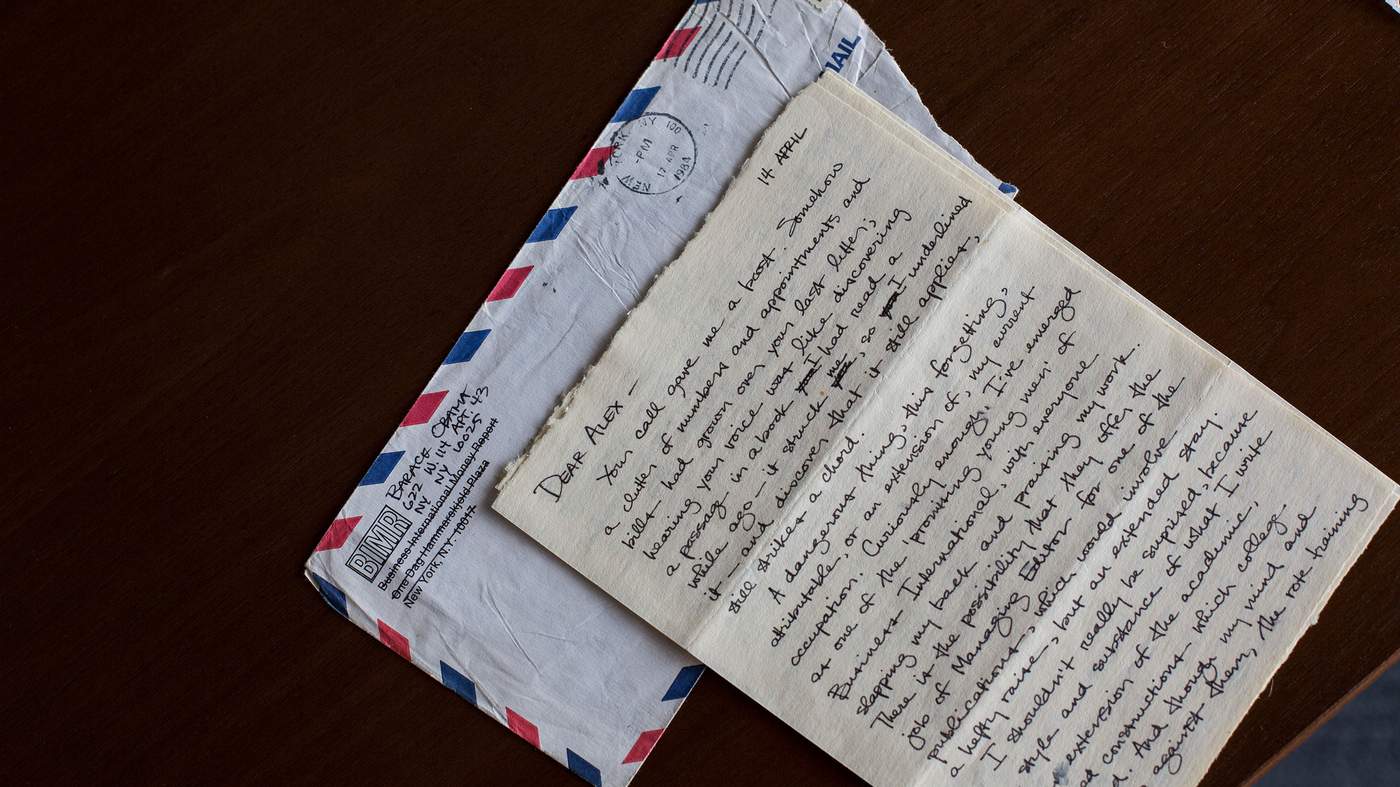 MAIL
NEW YORK NY 100
-PM
17 APR
1984
BARACK OBAMA
622 W 114 APT. 43
NY NY 10025
BIMR
Business International Money Report
One Dag Hammarskjold Plaza
New York, N.Y. 10017
14 APRIL
DEAR ALEX —
Your call gave me a boost. Somehow
a clutter of numbers and appointments and
bills had grown over your last letter;
hearing your voice was like discovering
a passage in a book I had read a
while ago - it struck me, so I underlined
it - and discover that it still applies,
still strikes a chord.
A dangerous thing, this forgetting,
attributable, or an extension of, my current
occupation. Curiously enough, I've emerged
as one of the 'promising young men' of
Business International, with everyone
slapping my back and praising my work.
There is the possibility that they offer the
job of Managing Editor for one of the
publications, which would involve
a hefty raise, but an extended stay.
I shouldn't really be surprised, because
style and substance of what I write
extension of the academic,
ed constructions which college
d. And though my mind and
against them, the rote training